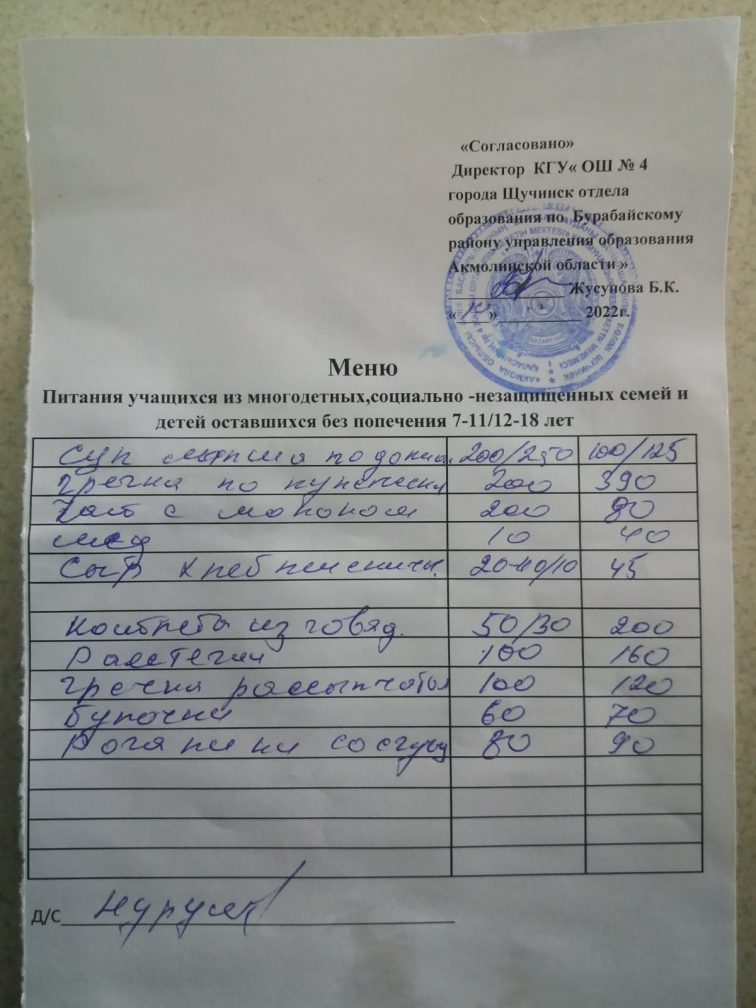 «Согласовано»
Директор КГУ« ОШ № 4
города Щучинск отдела
образования по Бурабайскому
району управления образования
Акмолинской области »
Жусупова Б.К.
« » 2022г.
Меню
Питания учащихся из многодетных,социально -незащищенных семей и
детей оставшихся без попечения 7-11/12-18 лет
Суп лапша по домаш 200/250 100/125
Гречка по купечески 200 390
Чай с молоком 200 80
мед 10 40
Сыр хлеб пшеничн. 20/40/10 45
Котлеты из говяд. 50/30 200
Расстегай 100 160
Гречка рассыпчатая 100 120
Булочки 60 70
Рогалики со сгущ 80 90
Д/С